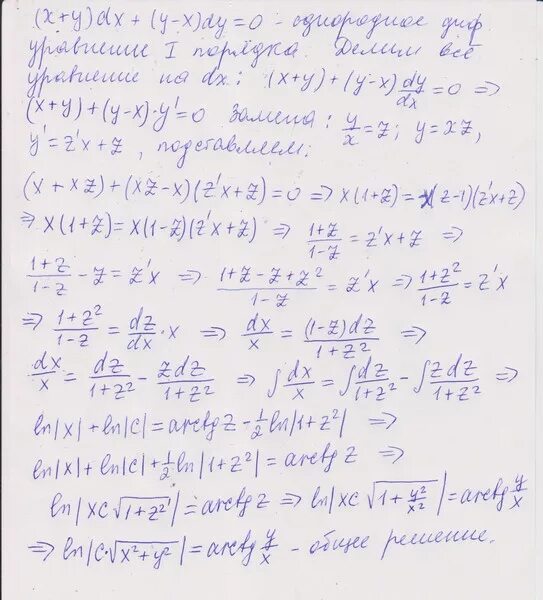 (x+y)dx + (y-x)dy = 0 - однородное диф
уравнение I порядка. Делим всё
уравнение на dx: (x+y) + (y-x) dy/dx = 0 ⇒
(x+y) + (y-x)·y' = 0 замена: y/x = z; y = xz,
y' = z'x + z, подставляем:
(x + xz) + (xz - x)(z'x + z) = 0 ⇒ x(1+z) = -x(z-1)(z'x+z)
⇒ x(1+z) = x(1-z)(z'x+z) ⇒ (1+z)/(1-z) = z'x + z ⇒
(1+z)/(1-z) - z = z'x ⇒ (1+z-z+z²)/(1-z) = z'x ⇒ (1+z²)/(1-z) = z'x
⇒ (1+z²)/(1-z) = dz/dx · x ⇒ dx/x = (1-z)dz/(1+z²) ⇒
dx/x = dz/(1+z²) - zdz/(1+z²) ⇒ ∫dx/x = ∫dz/(1+z²) - ∫zdz/(1+z²) ⇒
ln|x| + ln|c| = arctg z - ½ ln|1+z²| ⇒
ln|x| + ln|c| + ½ ln|1+z²| = arctg z ⇒
ln|xc√(1+z²)| = arctg z ⇒ ln|xc√(1+y²/x²)| = arctg y/x
⇒ ln|c·√(x²+y²)| = arctg y/x - общее решение.